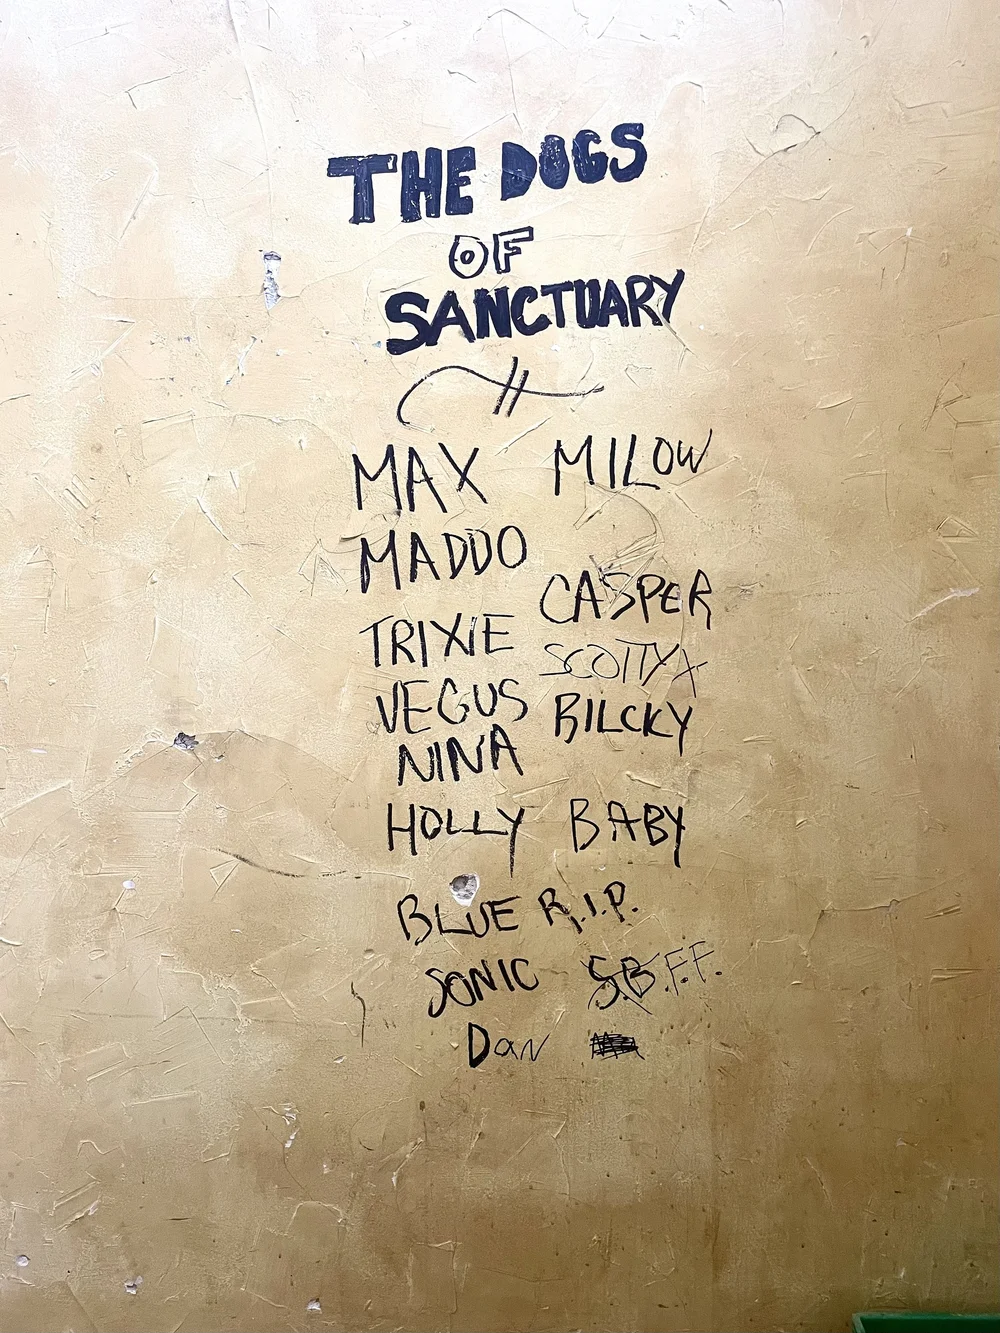 THE DOGS
OF
SANCTUARY
MAX MILOW
MADDO
CASPER
TRIXIE
SCOTTY X
VEGUS BILCKY
NINA
HOLLY BABY
BLUE R.I.P.
SONIC S.B.F.F.
Dan